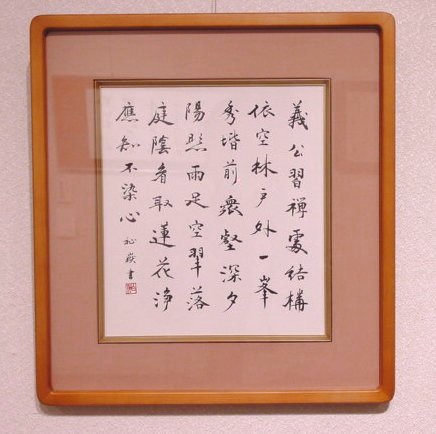 義公習禅處結構
依空林戸外一峯
秀堦前衆壑深夕
陽照雨足空翠落
庭陰看取蓮花浄
應知不染心 書